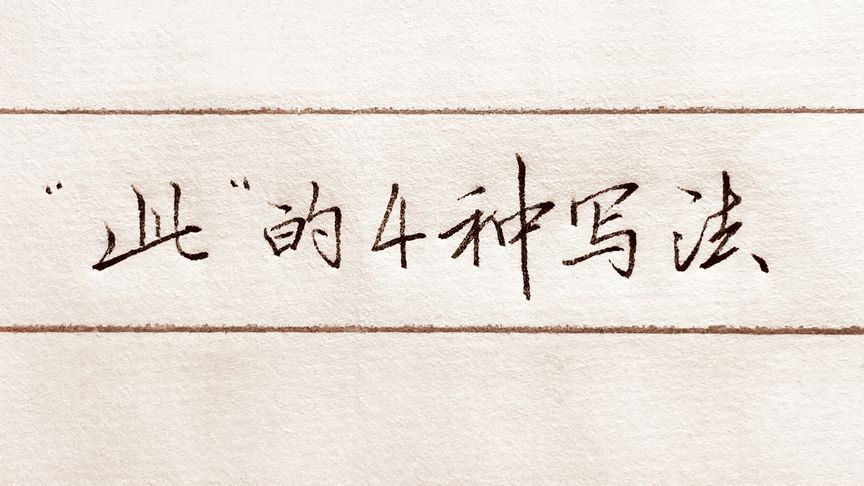 “此”的4种写法